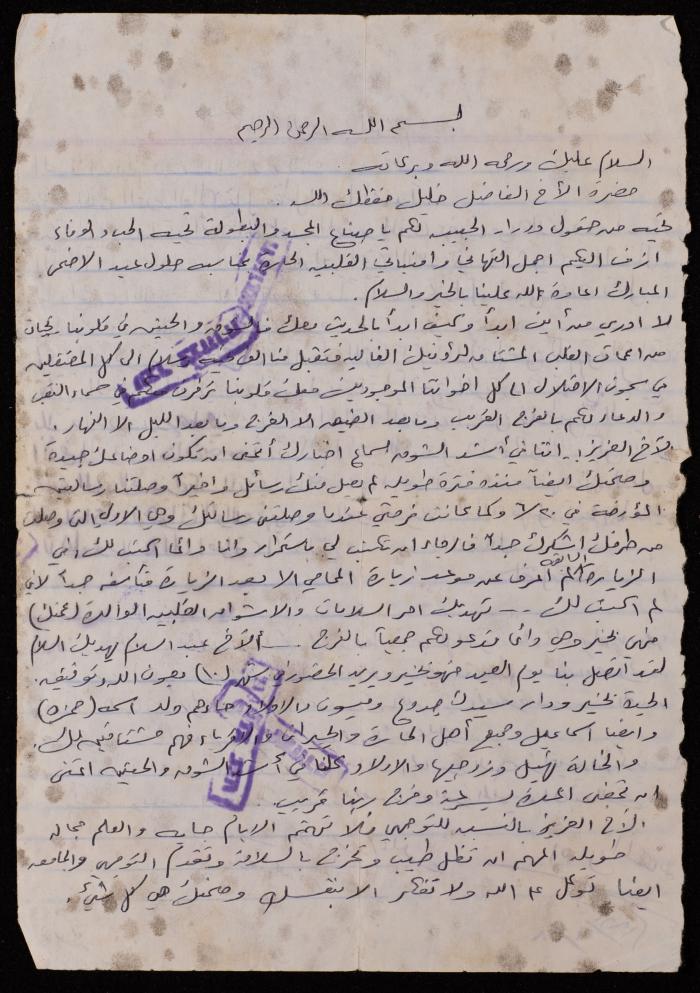 بسم الله الرحمن الرحيم
السلام عليك ورحمة الله وبركاته
حضرة الأخ الفاضل خليل حفظك الله .
تحيه من حقول ودرار الحبيبه لكم يا صناع المجد والبطولة تحيه الحب والوفاء
ازف اليكم اجمل التهاني وامنياتي القلبيه الحاره بمناسبه حلول عيد الاضحى
المبارك اعاده الله علينا بالخير والسلام .
لا ادري من أين ابدأ وكيف ابدأ بالحديث معك فالشوق والحنين في قلوبنا
من اعماق القلب المشتاقه لرؤيتك الغاليه فتقبل منا الف تحيه وسلام الى كل المعتقلين
في سجون الاحتلال الى كل اخواننا الموجودين معك قلوبنا ترفرف في سماء النقب
والدعاء لكم بالفرج القريب وما بعد الضيق الا الفرج وما بعد الليل الا النهار .
الأخ العزيز :- انتابني أشد الشوق لسماع اخبارك أتمنى ان تكون اوضاعك جيدة
وصحتك ايضاً منذ فترة طويله لم يصل منك رسائل واخيراً وصلتنا رسالتك
المؤرخة في ٦/٢٠ وكما كانت فرحتي عندما وصلتني رسالتك وهي الاولى التي وصلت
من طرفك اشكرك جداً فالرجاء ان تكتب لي باستمرار وانا دائما اكتب لك في
الزيارة لم أعرف عن موعد زيارة المحامي الا بعد الزيارة فتأسفه جداً لأني
لم اكتب لك -- تهديك احر السلامات والاشواق القلبيه الوالدة (عمتك)
فهي بخير وهي دائما تدعو لكم جميعاً بالفرج -- الأخ عبد السلام يهديك السلام
لقد اتصل بنا يوم العيد فهو بخير ويريد الحضور في شهر (١٠) بعون الله وتوفيقه .
الحجة بخير ودار سيدك ممدوح وميسون والاولاد جاءهم ولد اسمه (حمزه)
وايضا اسماعيل وجميع أهل الحارة والجيران والاقرباء فهم مشتاقين لك .
والخالة نهيل وزوجها والاولاد كلنا في أشد الشوق والحنين اتمنى
ان تمضي المدة بسرعة وفرج ربنا قريب .
الأخ العزيز بالنسبه للتوجيهي فلا تهتم الايام جايه والعلم مجاله
طويله المهم ان تظل طيب وتخرج بالسلامة وتقدم التوجيهي والجامعه
ايضا توكل ع الله ولا تفكر الا بنفسك وصحتك هي كل شيء .